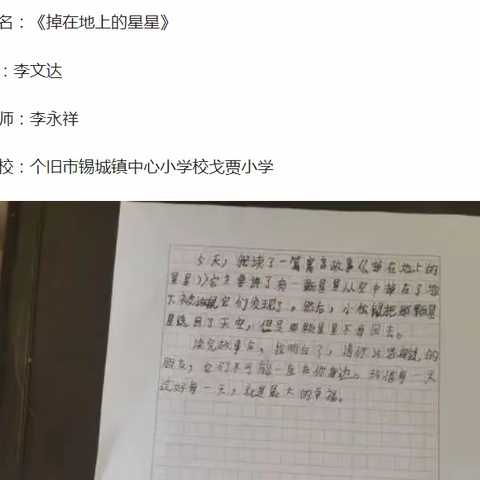 名：《掉在地上的星星》
：李文达
师：李永祥
校：个旧市锡城镇中心小学校戈贾小学
今天，我读了一篇寓言故事《掉在地上的
星星》它主要讲了有一颗星星从空中掉在了地
下被 它们发现了。然后，小松鼠把那颗星
星送回了天空，但是那颗星星不肯回去。
读完故事后，我明白了，请你 的
朋友，它们不可能一直在你身边。珍惜每一天
过好每一天，就是最大的幸福。